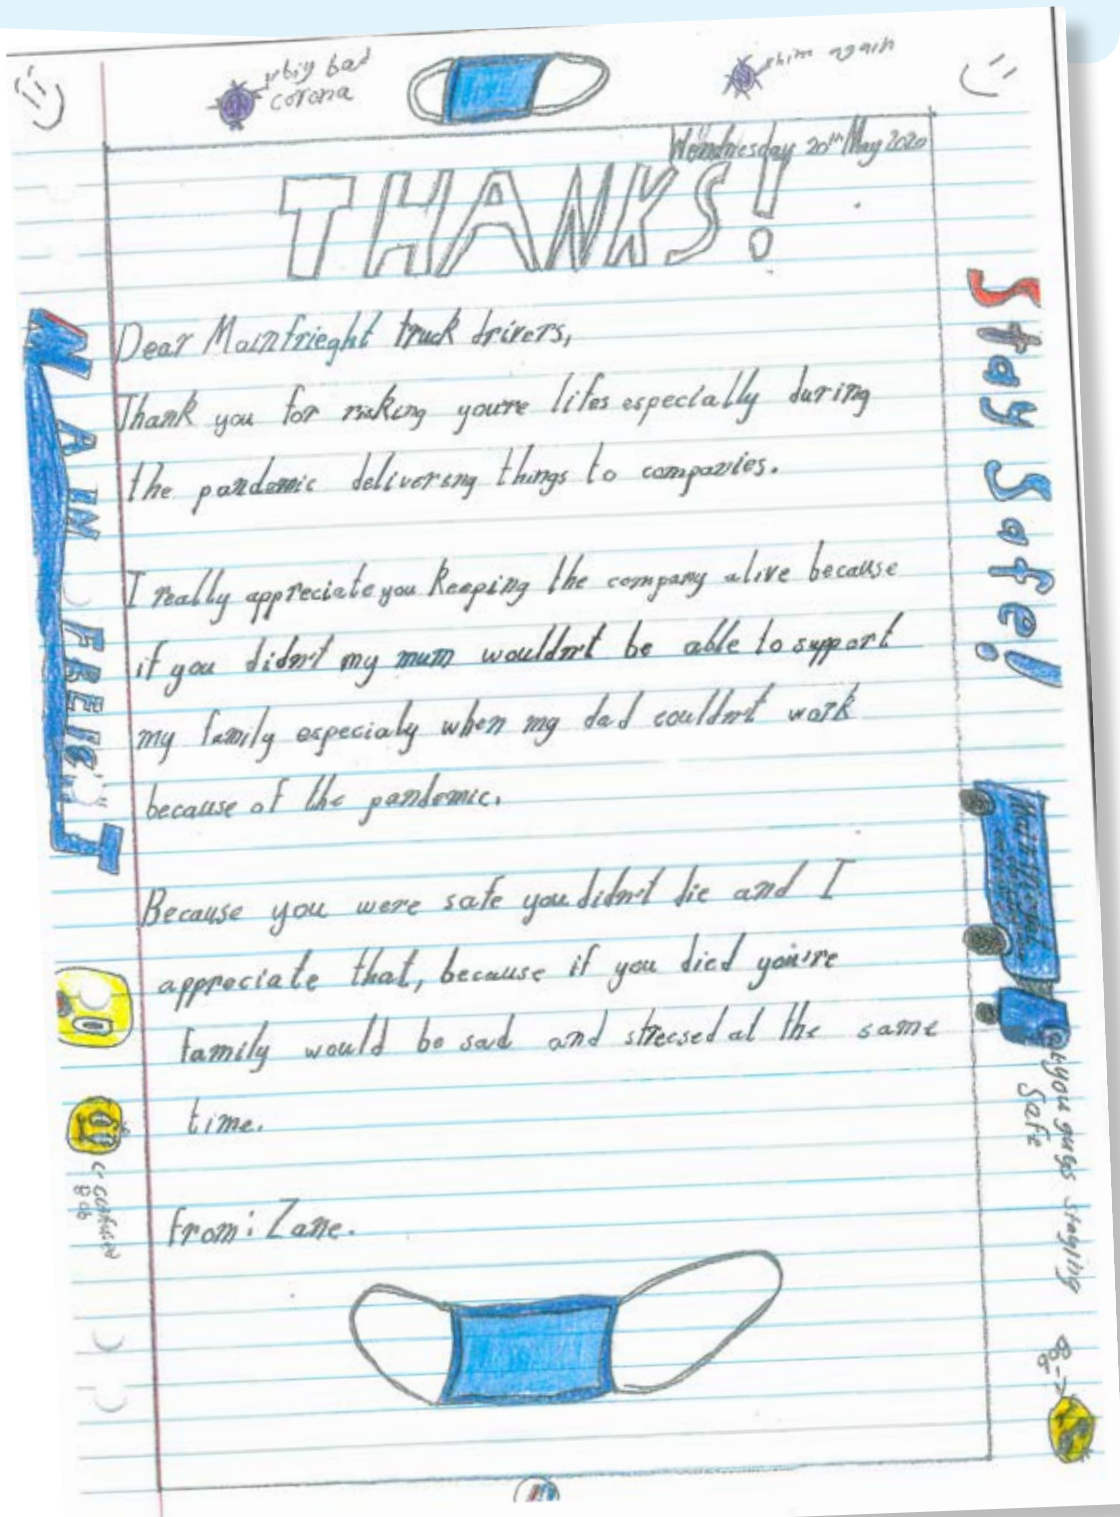 big bad
corona
him again
Wendnesday 20th May 2020
THANKS!
Dear Mainfrieght truck drivers,
Thank you for risking youre lifes especially during
the pandemic delivering things to companies.
I really appreciate you keeping the company alive because
if you didn't my mum wouldn't be able to support
my family especialy when my dad couldn't work
because of the pandemic.
Because you were safe you didn't die and I
appreciate that, because if you died you're
family would be sad and streesed at the same
time.
from: Zane.
MAINFREIGHT
confused
Bob
Stay Safe!
Mainfreight
you guys staying
safe
Bob